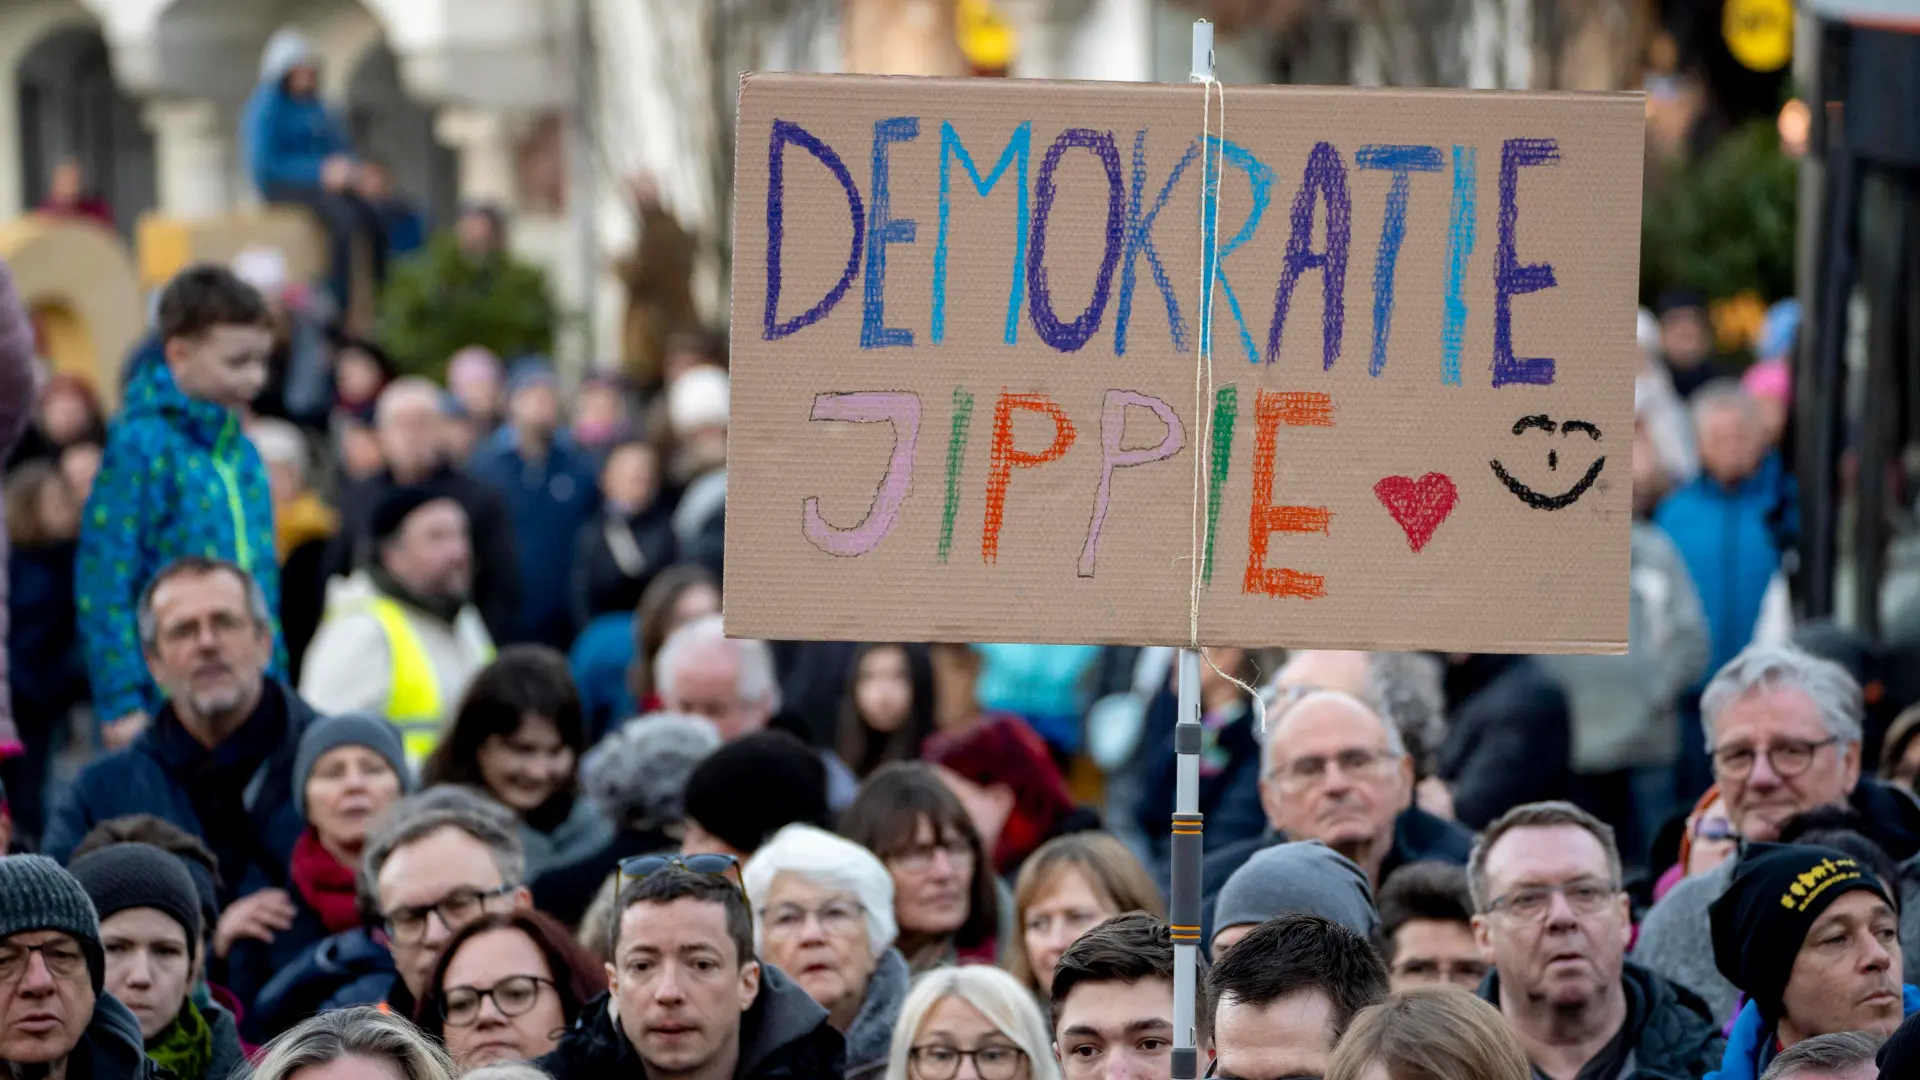 DEMOKRATIE
JIPPIE